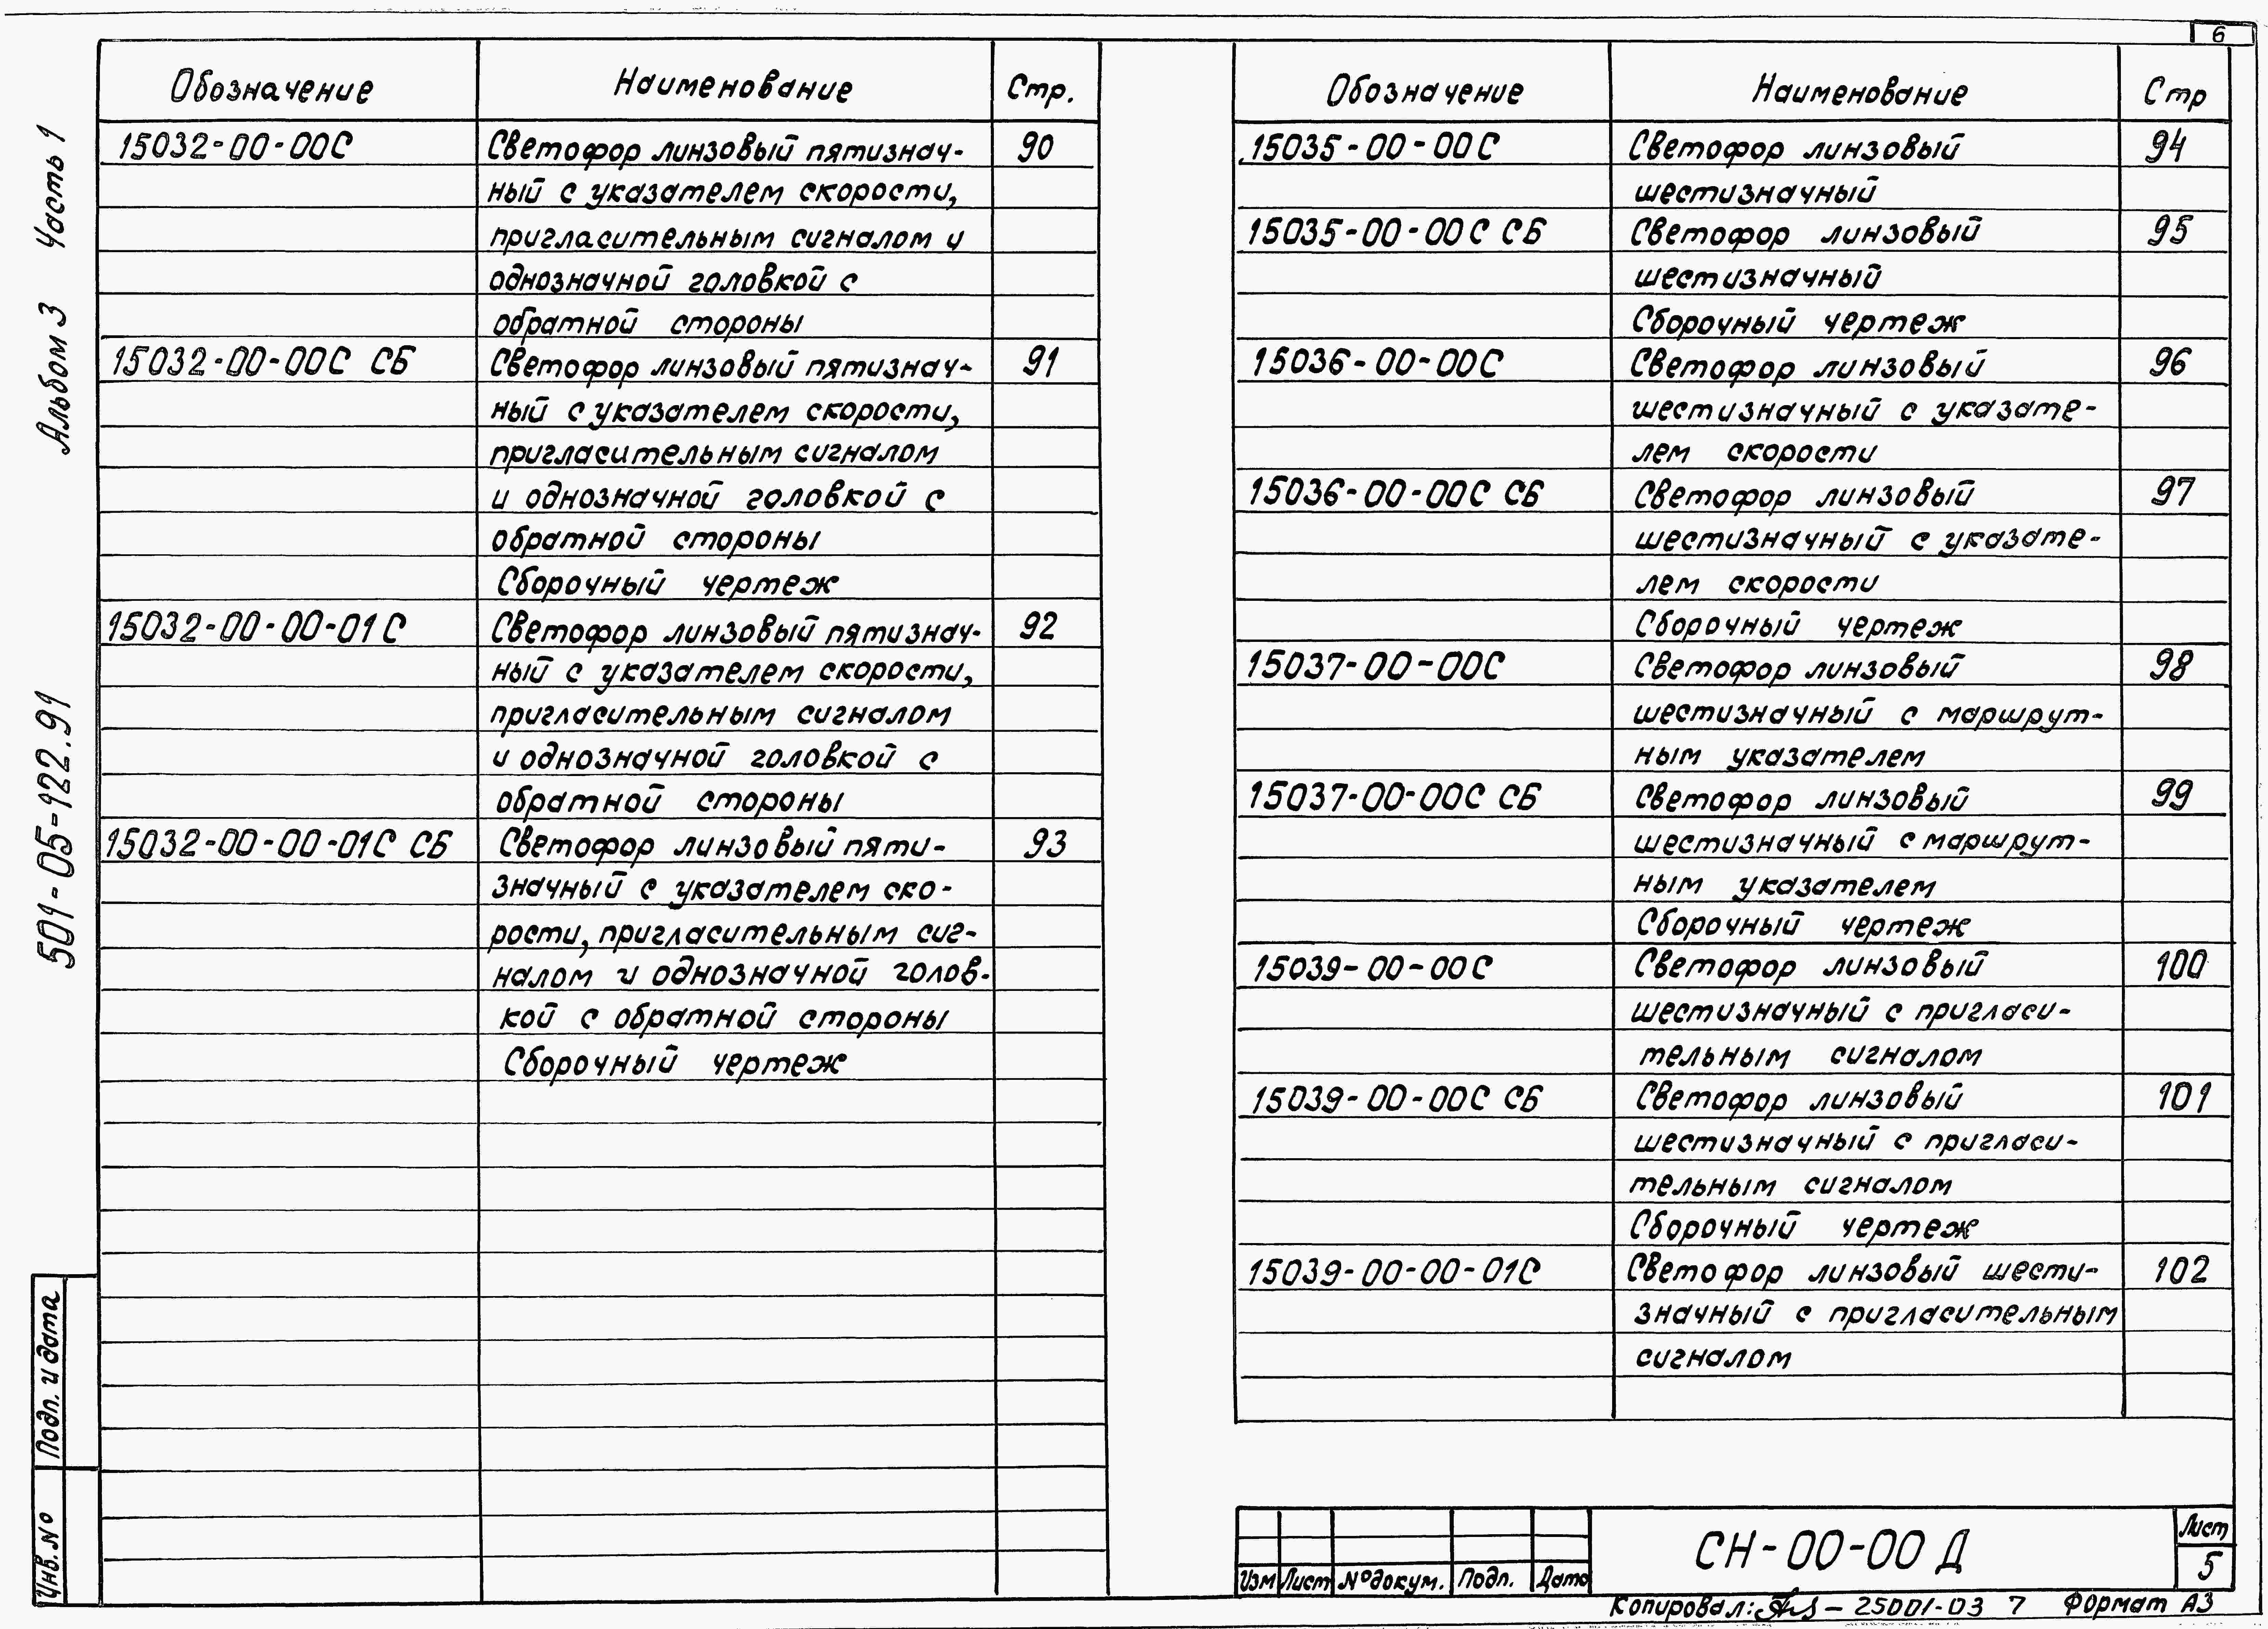 6
Альбом 3 Часть 1
501-05-122.91
Подп. и дата
Инв. №
Обозначение Наименование Стр.
15032-00-00С Светофор линзовый пятизнач- 90
ный с указателем скорости,
пригласительным сигналом и
однозначной головкой с
обратной стороны
15032-00-00С СБ Светофор линзовый пятизнач- 91
ный с указателем скорости,
пригласительным сигналом
и однозначной головкой с
обратной стороны
Сборочный чертеж
15032-00-00-01С Светофор линзовый пятизнач- 92
ный с указателем скорости,
пригласительным сигналом
и однозначной головкой с
обратной стороны
15032-00-00-01С СБ Светофор линзовый пяти- 93
значный с указателем ско-
рости, пригласительным сиг-
налом и однозначной голов-
кой с обратной стороны
Сборочный чертеж
Обозначение Наименование Стр
15035-00-00С Светофор линзовый 94
шестизначный
15035-00-00С СБ Светофор линзовый 95
шестизначный
Сборочный чертеж
15036-00-00С Светофор линзовый 96
шестизначный с указате-
лем скорости
15036-00-00С СБ Светофор линзовый 97
шестизначный с указате-
лем скорости
Сборочный чертеж
15037-00-00С Светофор линзовый 98
шестизначный с маршрут-
ным указателем
15037-00-00С СБ Светофор линзовый 99
шестизначный с маршрут-
ным указателем
Сборочный чертеж
15039-00-00С Светофор линзовый 100
шестизначный с пригласи-
тельным сигналом
15039-00-00С СБ Светофор линзовый 101
шестизначный с пригласи-
тельным сигналом
Сборочный чертеж
15039-00-00-01С Светофор линзовый шести- 102
значный с пригласительным
сигналом
Изм Лист № докум. Подп. Дата
СН-00-00 Д
Лист
5
Копировал: – 25001-03 7 Формат А3